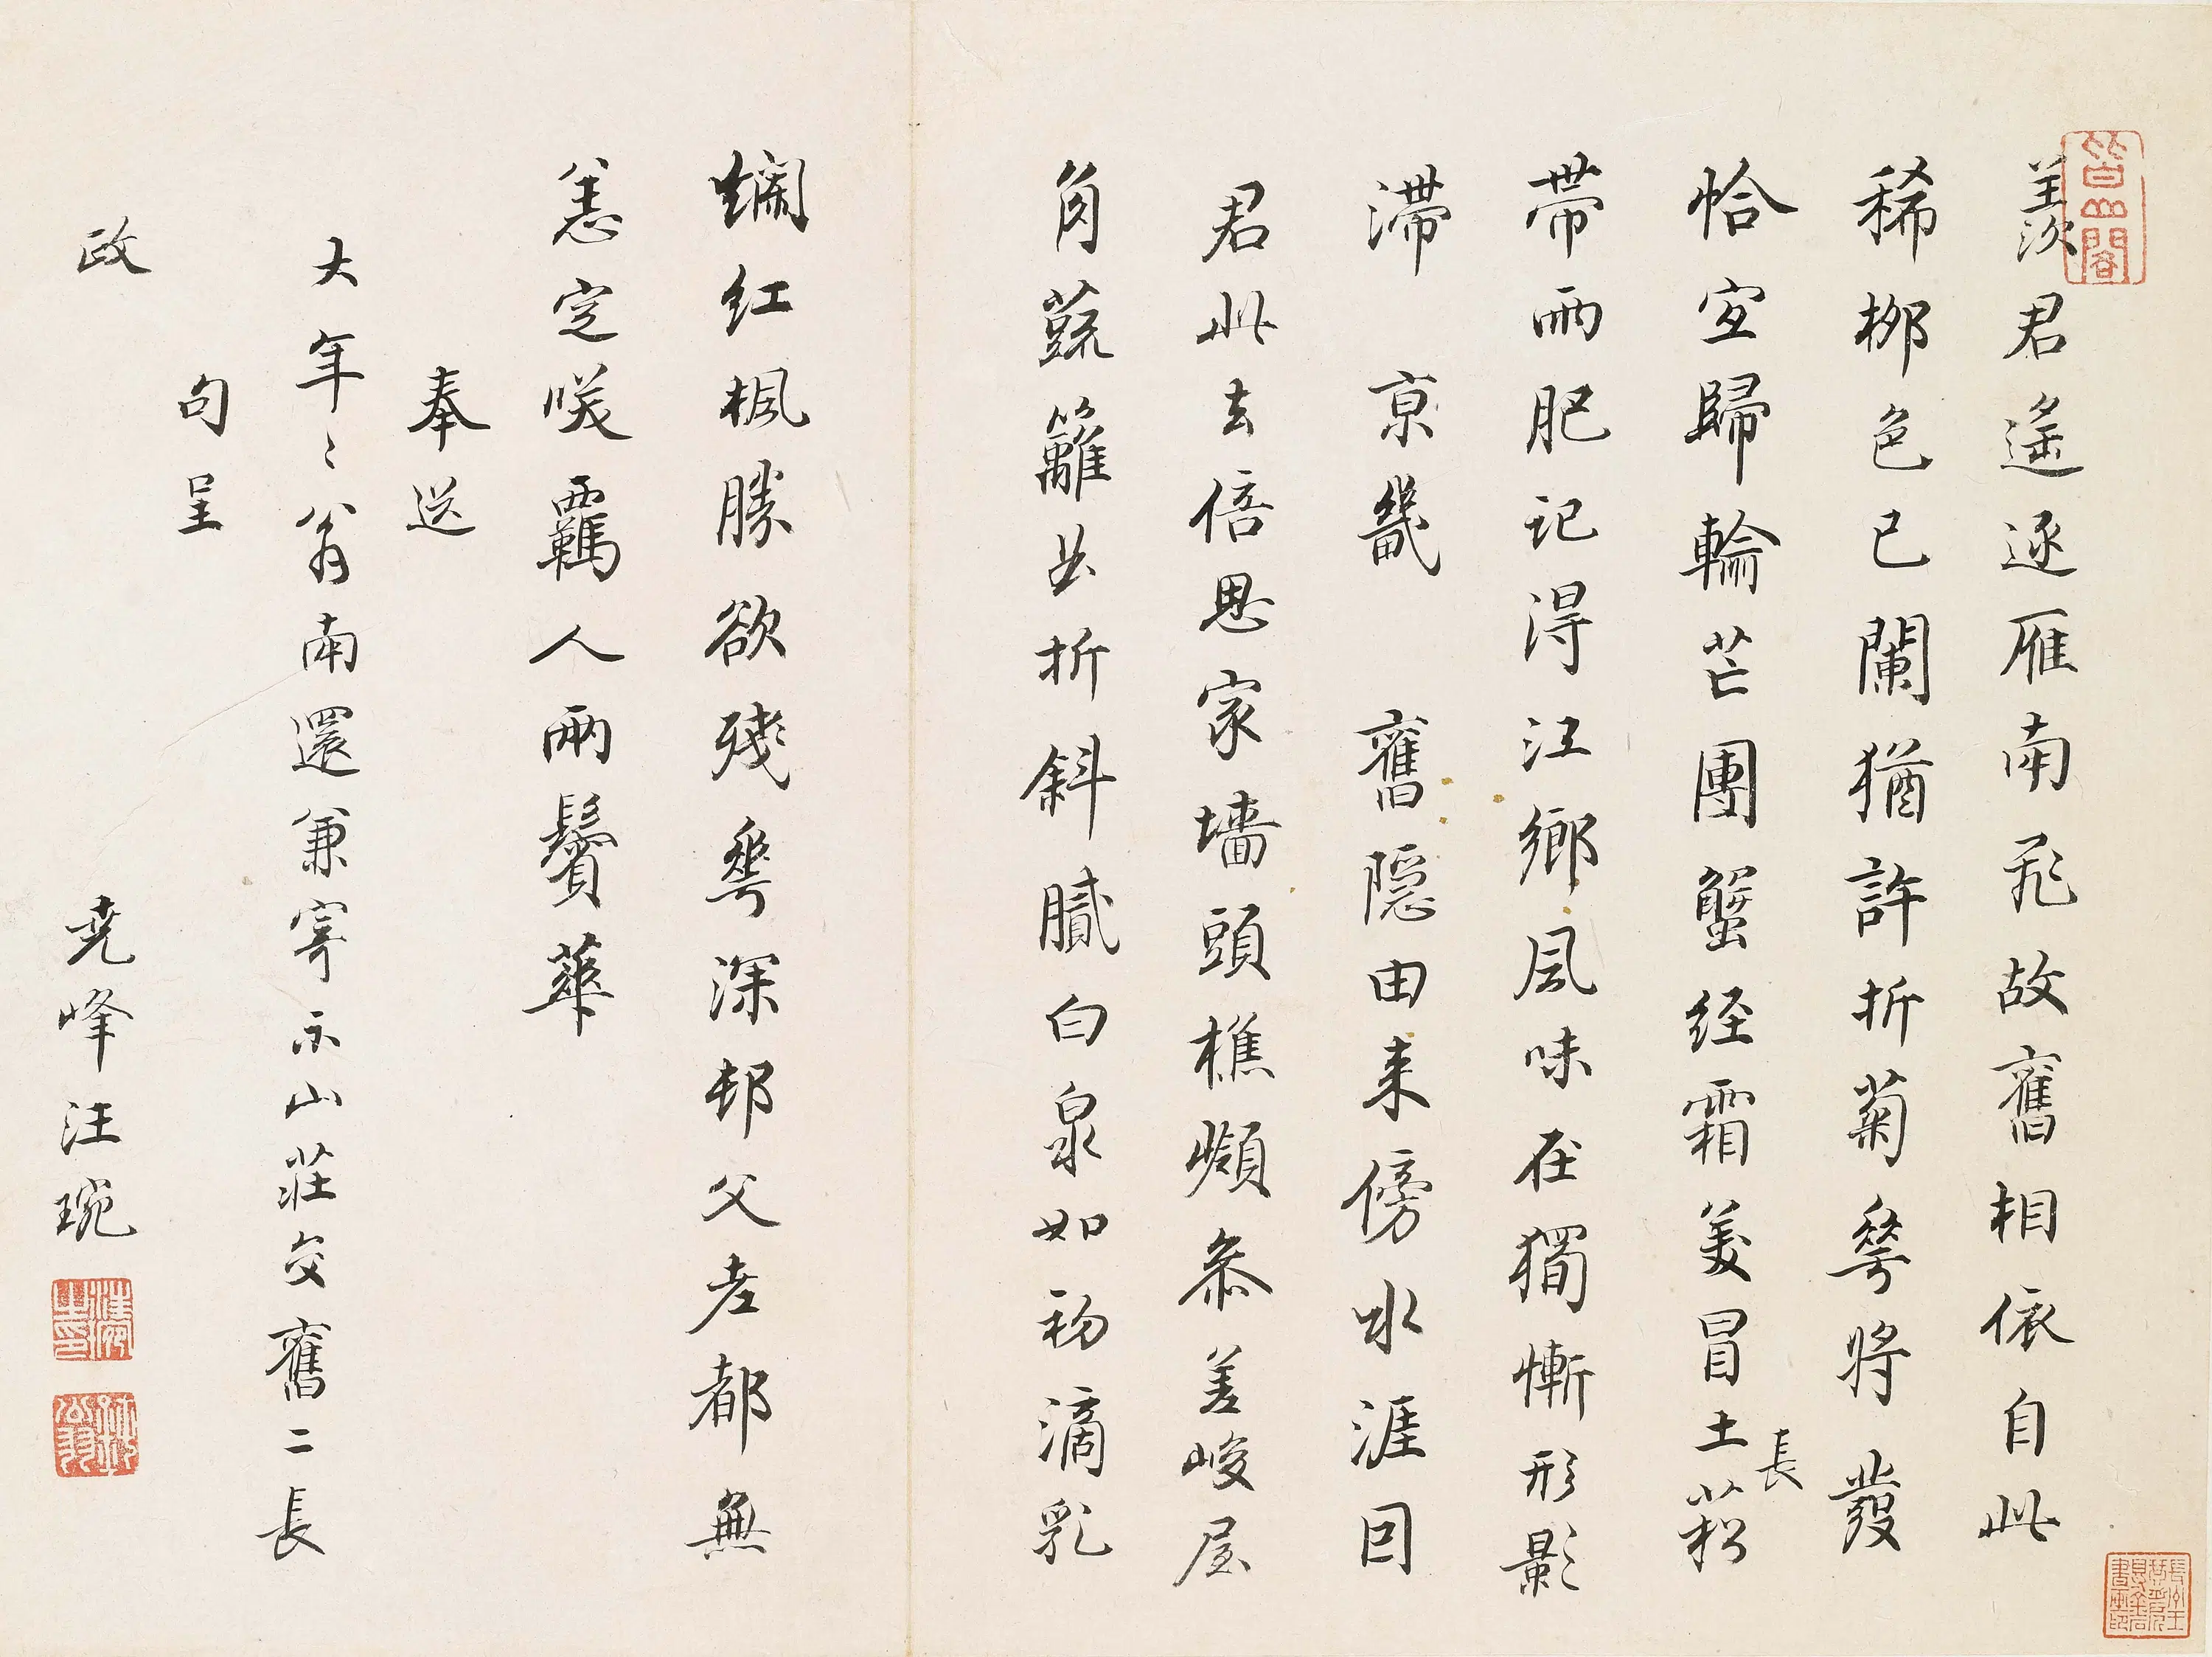 皆山閣
羨君遙逐雁南飛故舊相依自此
稀柳色已闌猶許折菊蕚將發
恰宜歸輪芒團蟹經霜美冒土菘
長
帶雨肥记得江鄉風味在獨慚形影
滯京畿舊隐由来傍水涯因
君此去倍思家墙頭樵嬾參差峻屋
角蔬籬曲折斜膩白泉如初滴乳
斓红楓勝欲殘蕚深邨父老都無
恙定咲羈人兩鬢華
奉送
大年年翁南還兼寄示山莊交舊二長
句呈
政
尭峰汪琬
汪琬之印